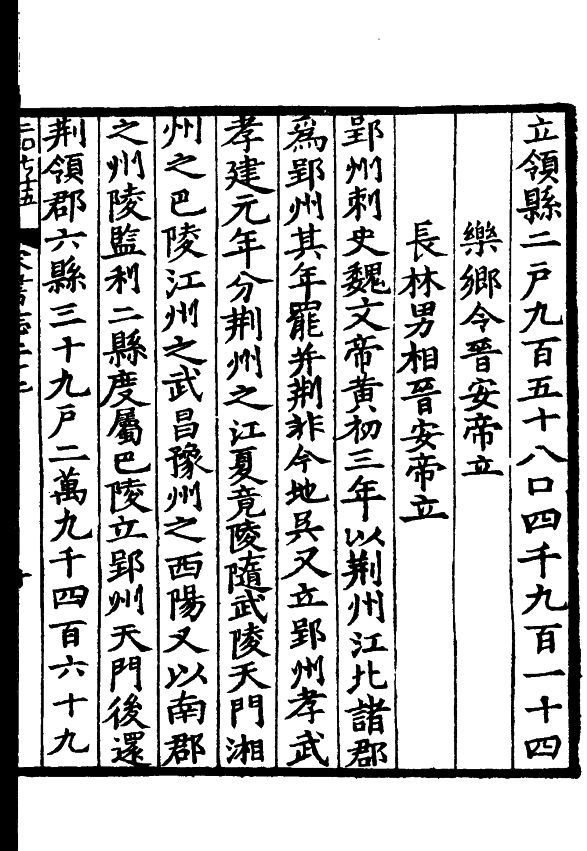 立領縣二戸九百五十八口四千九百一十四
樂鄉令晉安帝立
長林男相晉安帝立
郢州刺史魏文帝黄初三年以荆州江北諸郡
爲郢州其年罷并荆非今地吳又立郢州孝武
孝建元年分荆州之江夏竟陵隨武陵天門湘
州之巴陵江州之武昌豫州之西陽又以南郡
之州陵監利二縣度屬巴陵立郢州天門後還
荆領郡六縣三十九戸二萬九千四百六十九